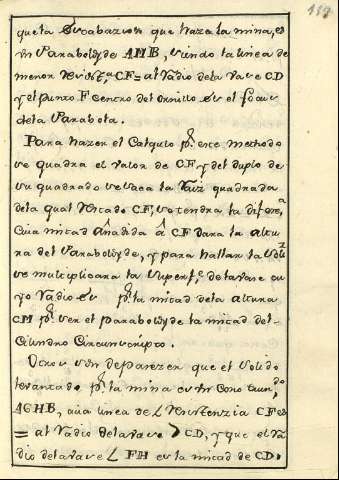 117
que la excabazion que haze la mina, es
un Paraboloyde AHB, siendo la linea de
menor resist.ª CF = al radio de la vase CD
y el punto F centro del ornillo es el focus
de la Parabola.
Para hazer el Calculo p.r este methodo
se quadra el valor de CF, y del duplo de
su quadrado se saca la raiz quadrada
de la qual restado CF, se tendra la difere.ª
cuia mitad añadida á CF dara la altu
ra del Paraboloyde, y para hallar la soli
se multiplicara la superf.e de la vase cu
yo radio es p.r la mitad de la altura
CM p.r ser el paraboloyde la mitad del
Cilindro Circunscripto.
Otros son de parezer que el solido
levantado p.r la mina es un Cono trun.do
AGHB, cuia linea de resistenzia CF es
= al radio de la vase CD, y que el ra
dio de la vase FH es la mitad de CD.